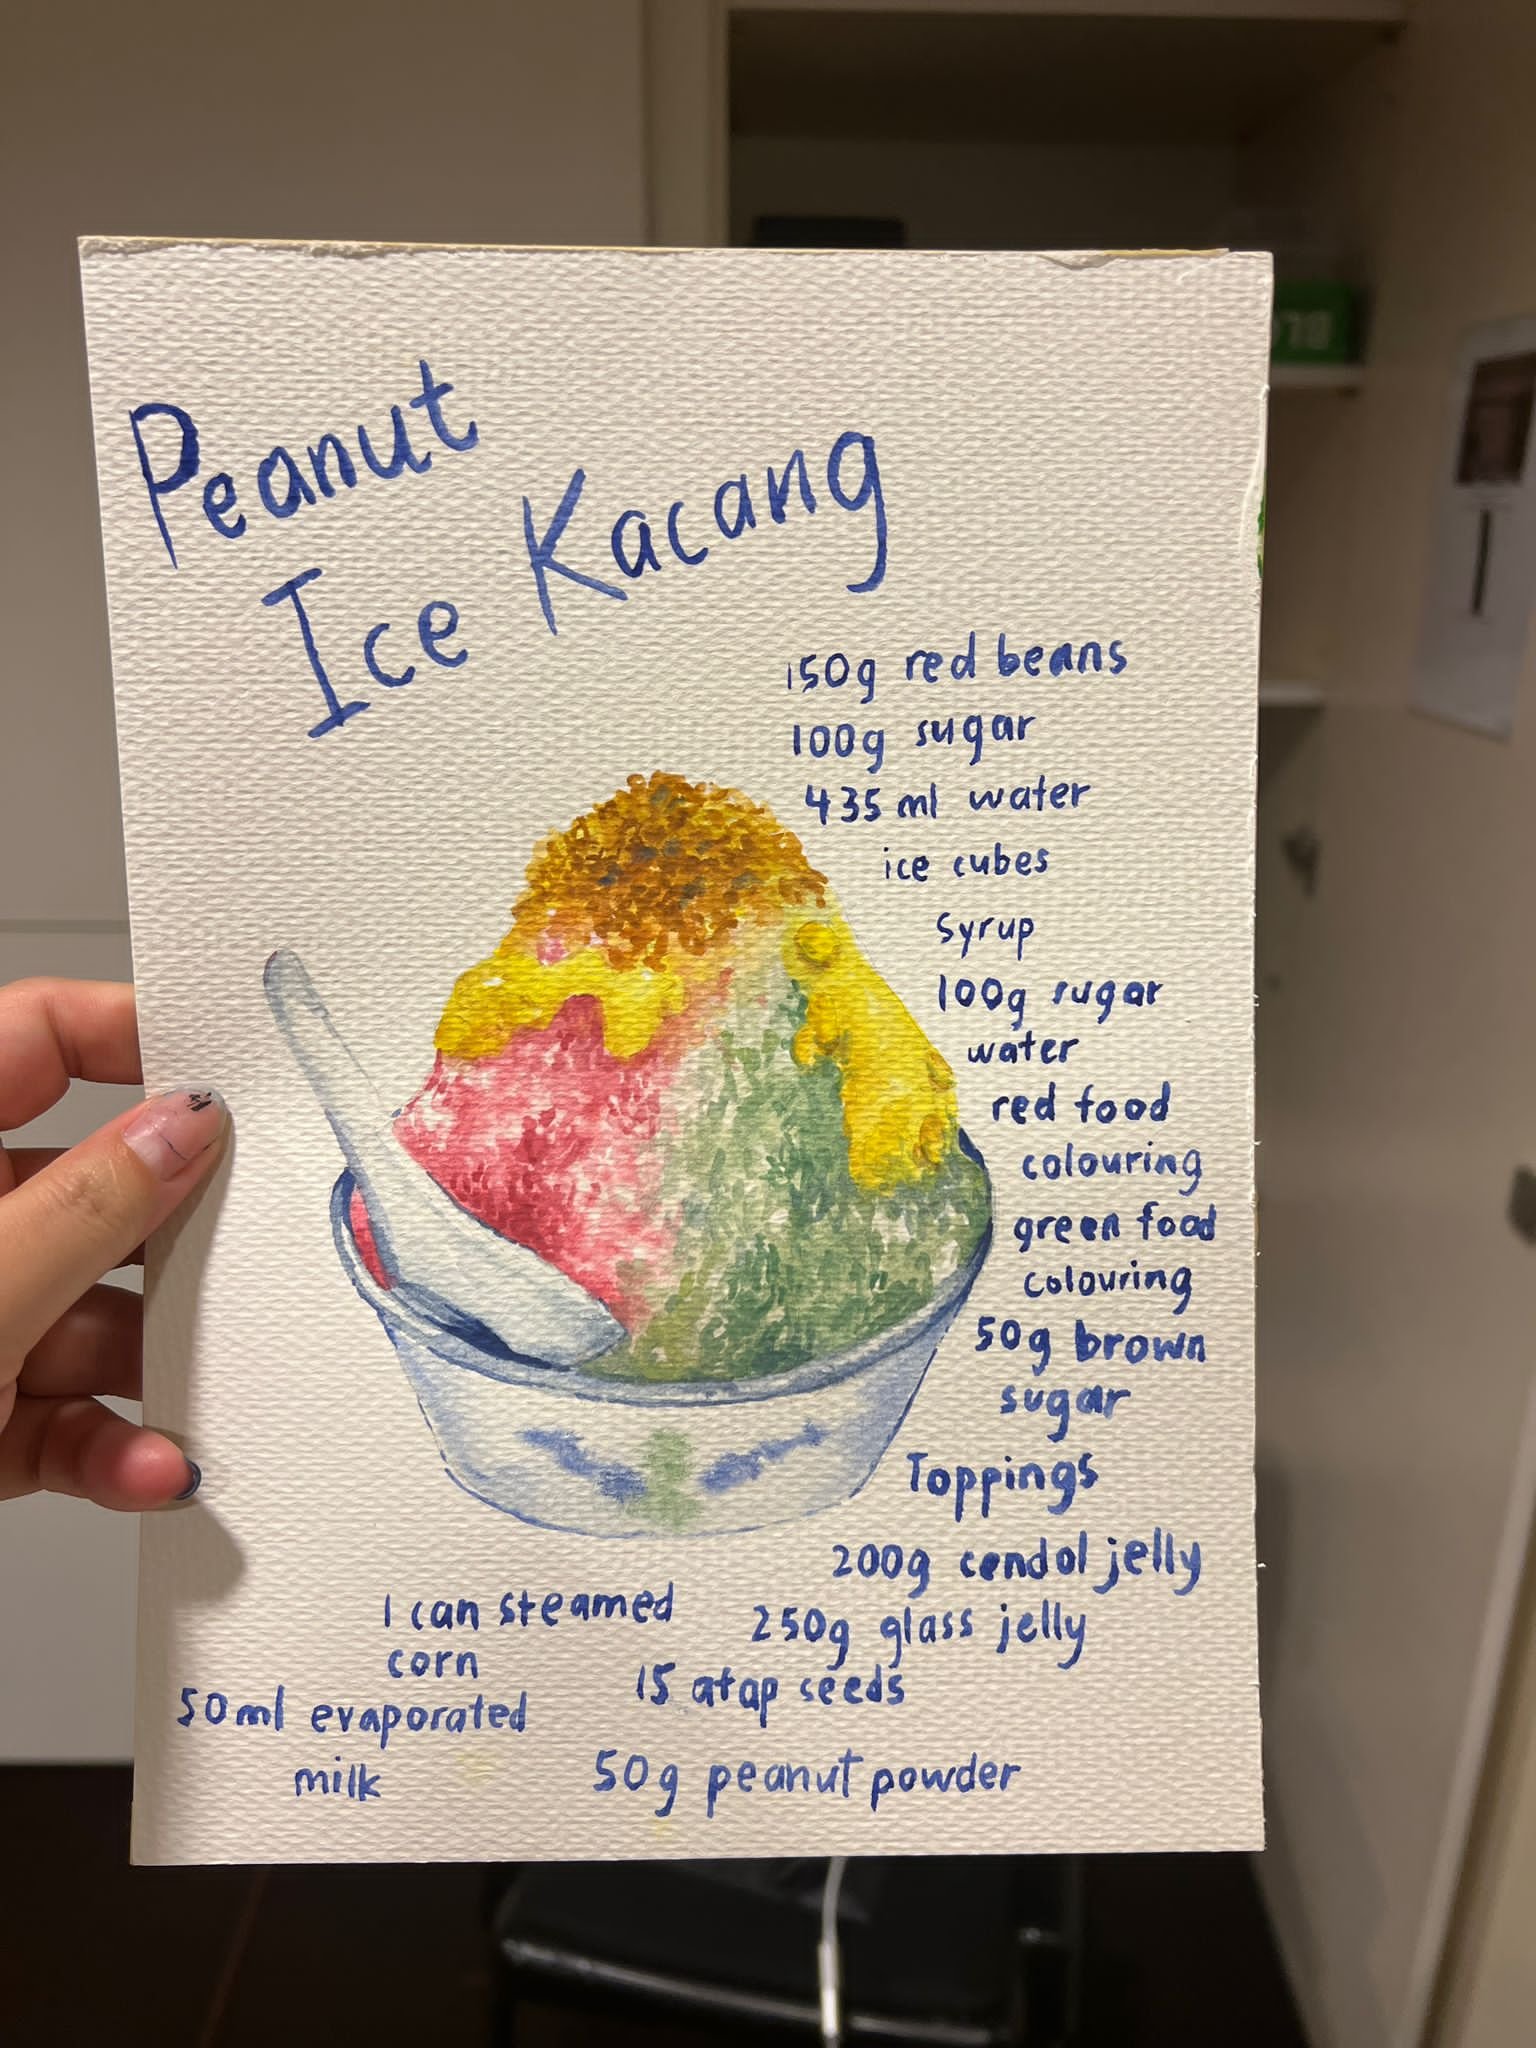 Peanut
Ice Kacang
150g red beans
100g sugar
435 ml water
ice cubes
Syrup
100g sugar
water
red food
colouring
green food
colouring
50g brown
sugar
Toppings
200g cendol jelly
250g glass jelly
15 atap seeds
50g peanut powder
1 can steamed
corn
50ml evaporated
milk